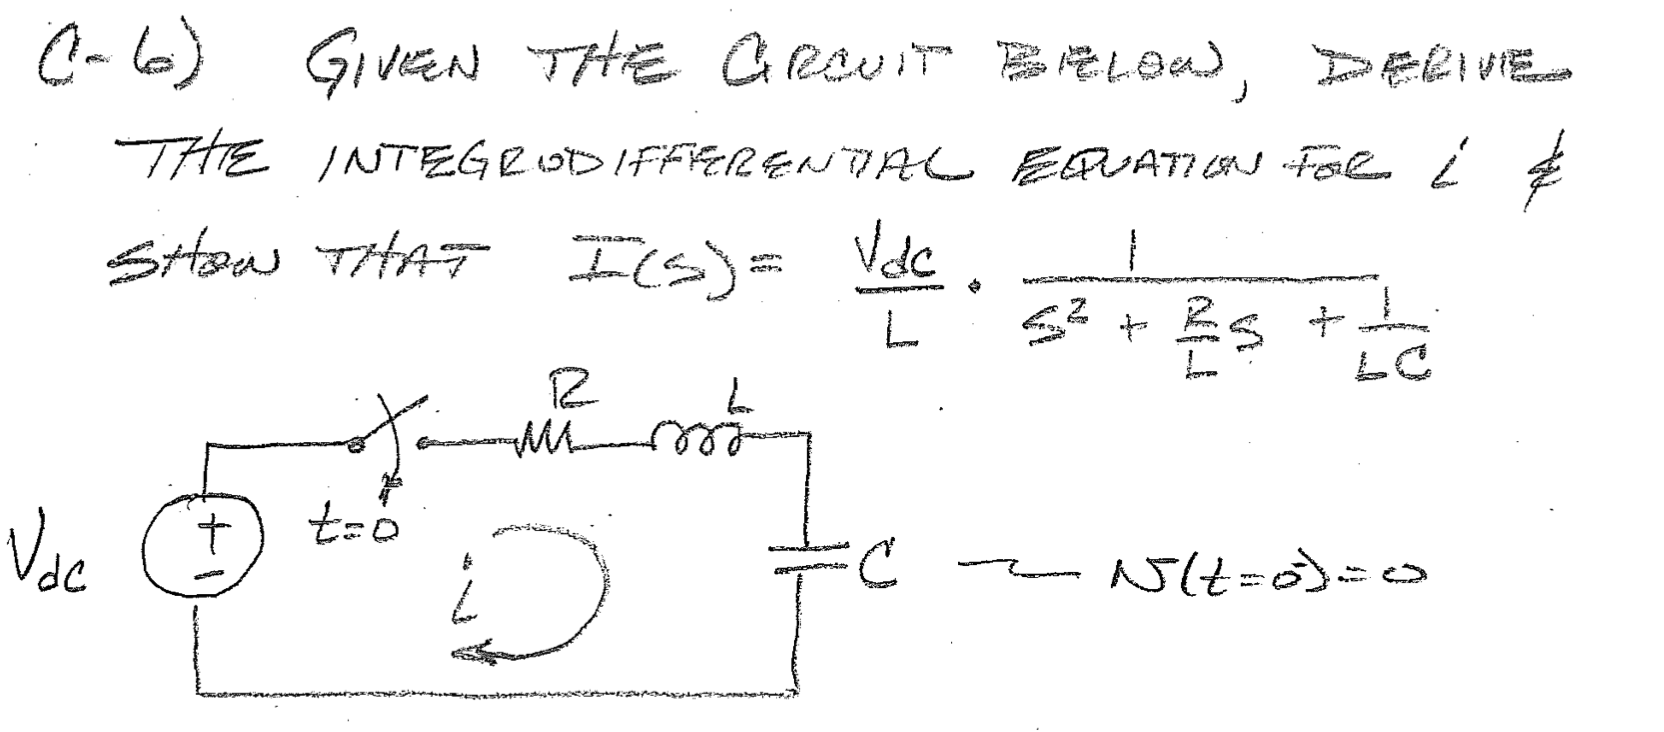 C-6) GIVEN THE CIRCUIT BELOW, DERIVE
THE INTEGRODIFFERENTIAL EQUATION FOR i &
SHOW THAT I(s) = Vdc/L · 1/(s² + R/L s + 1/LC)
R L
t=0
Vdc
+
-
i
C
v(t=0⁻)=0